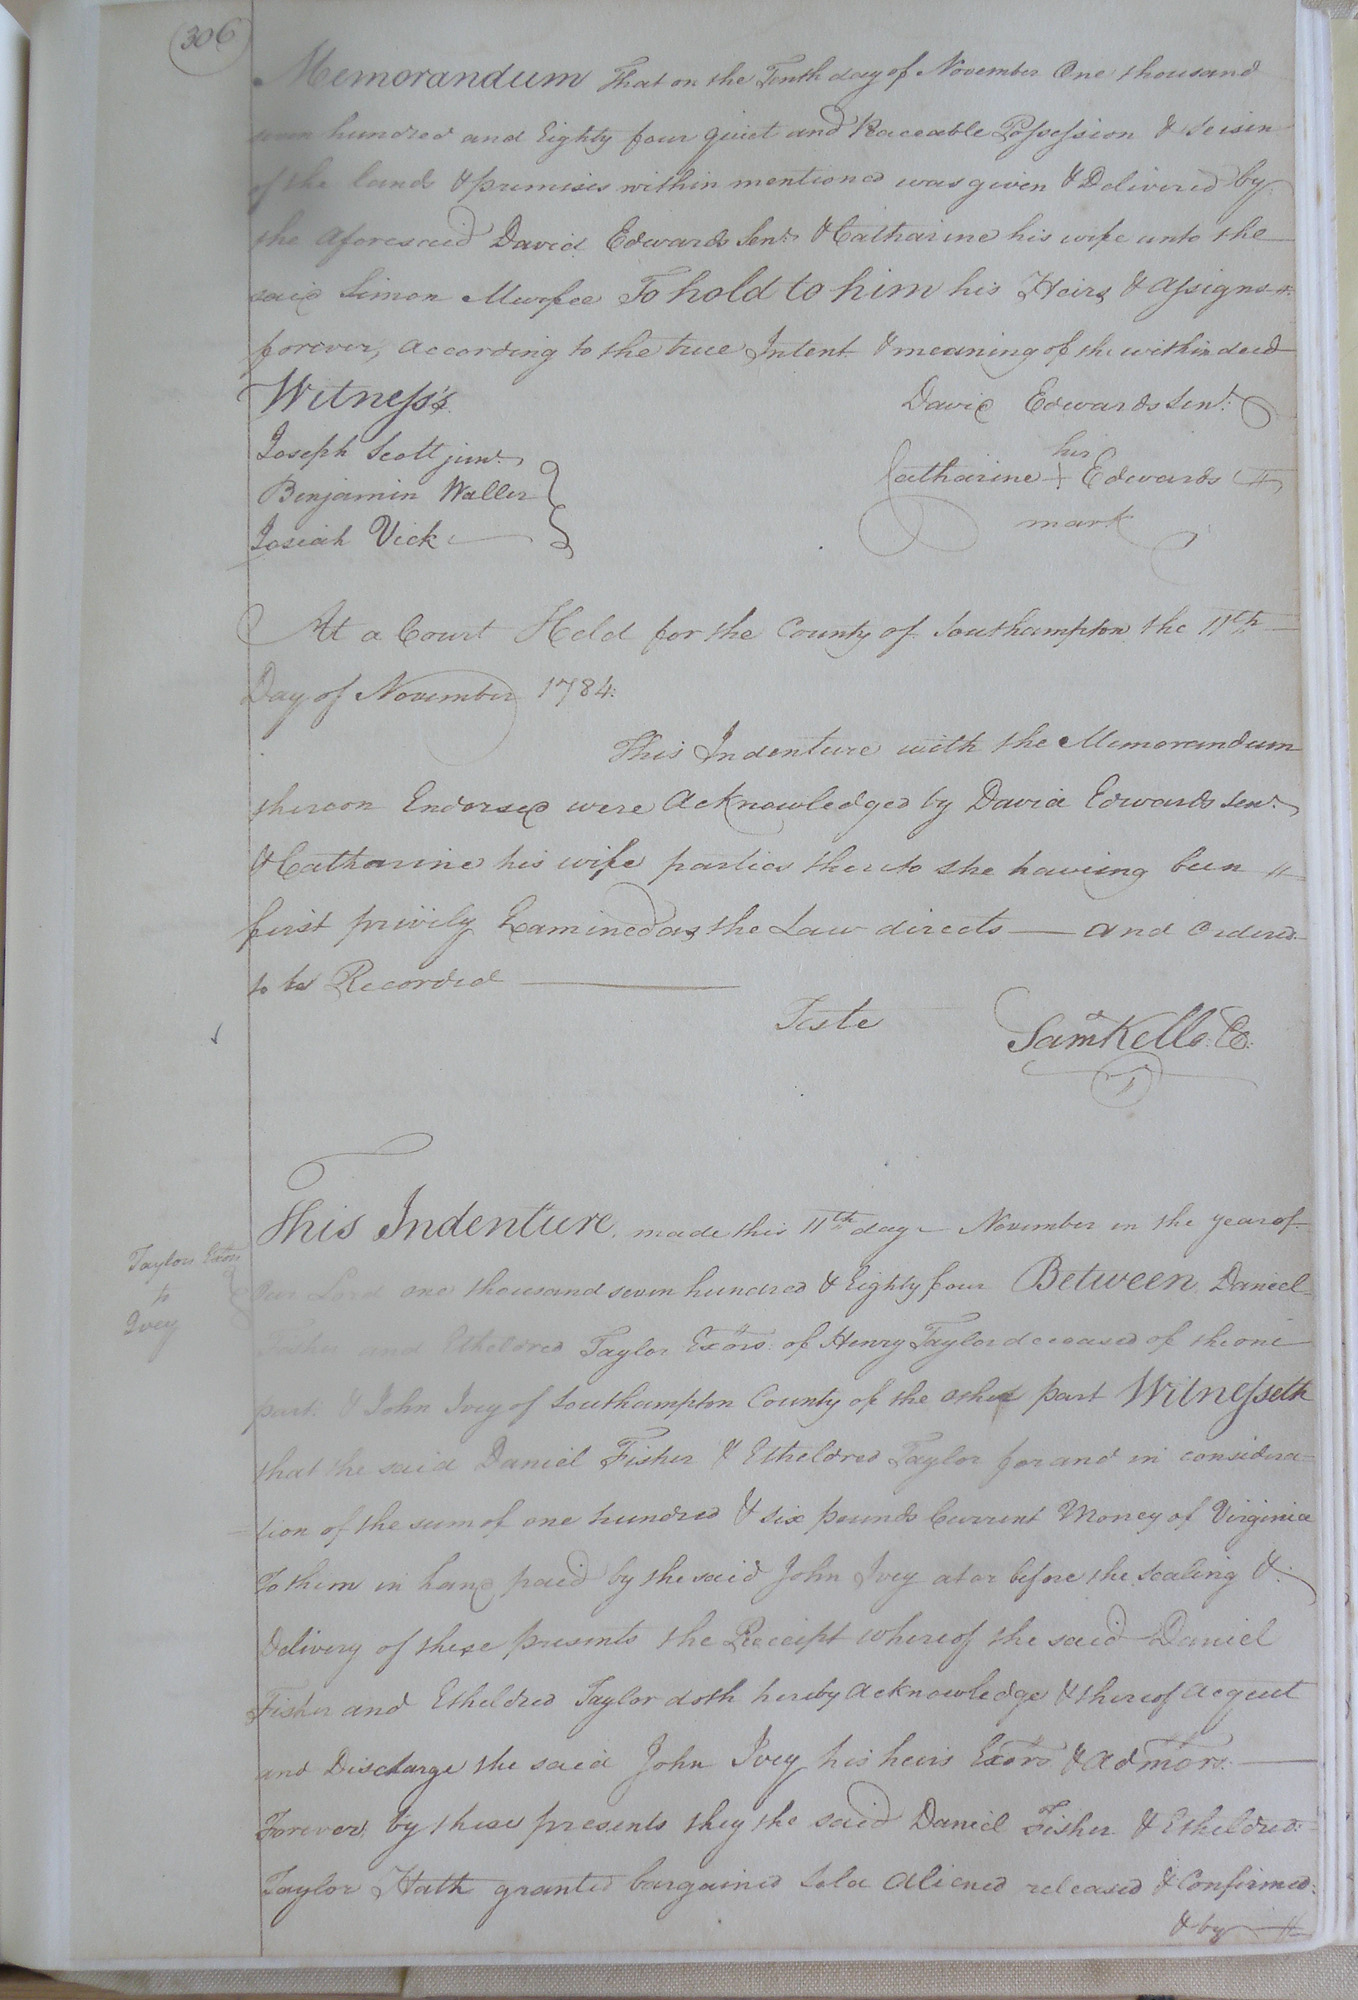 306
Memorandum That on the Tenth day of November One thousand
seven hundred and Eighty four quiet and Peaceable Possession & Seisin
of the lands & premises within mentioned was given & Delivered by
the aforesaid David Edwards Senr. & Catharine his wife unto the
said Simon Murfee To hold to him his Heirs & assigns
forever, according to the true Intent & meaning of the within deed
Witness's.
David Edwards Senr.
Joseph Scott junr.
Benjamin Waller
Josiah Vick
his
Catharine + Edwards
mark
At a Court Held for the County of Southampton the 11th
Day of November 1784.
This Indenture with the Memorandum
thereon Endorsed were acknowledged by David Edwards Senr.
& Catharine his wife parties thereto she having been
first privily Examined as the Law directs — and ordered
to be Recorded
Teste Saml Kello. C.
Taylors Exors
to
Ivey
This Indenture made this 11th day November in the year of
Our Lord one thousand seven hundred & Eighty four Between Daniel
Fisher and Etheldred Taylor Exors. of Henry Taylor deceased of the one
part. & John Ivey of Southampton County of the other part Witnesseth
that the said Daniel Fisher & Etheldred Taylor for and in considera=
=tion of the sum of one hundred & six pounds Current Money of Virginia
To them in hand paid by the said John Ivey at or before the Sealing &
Delivery of these presents the Receipt whereof the said Daniel
Fisher and Etheldred Taylor doth hereby acknowledge & thereof acquit
and Discharge the said John Ivey his heirs Exors & Admors.
Forever, by these presents they the said Daniel Fisher & Etheldred
Taylor Hath granted bargained Sold aliened released & Confirmed
& by